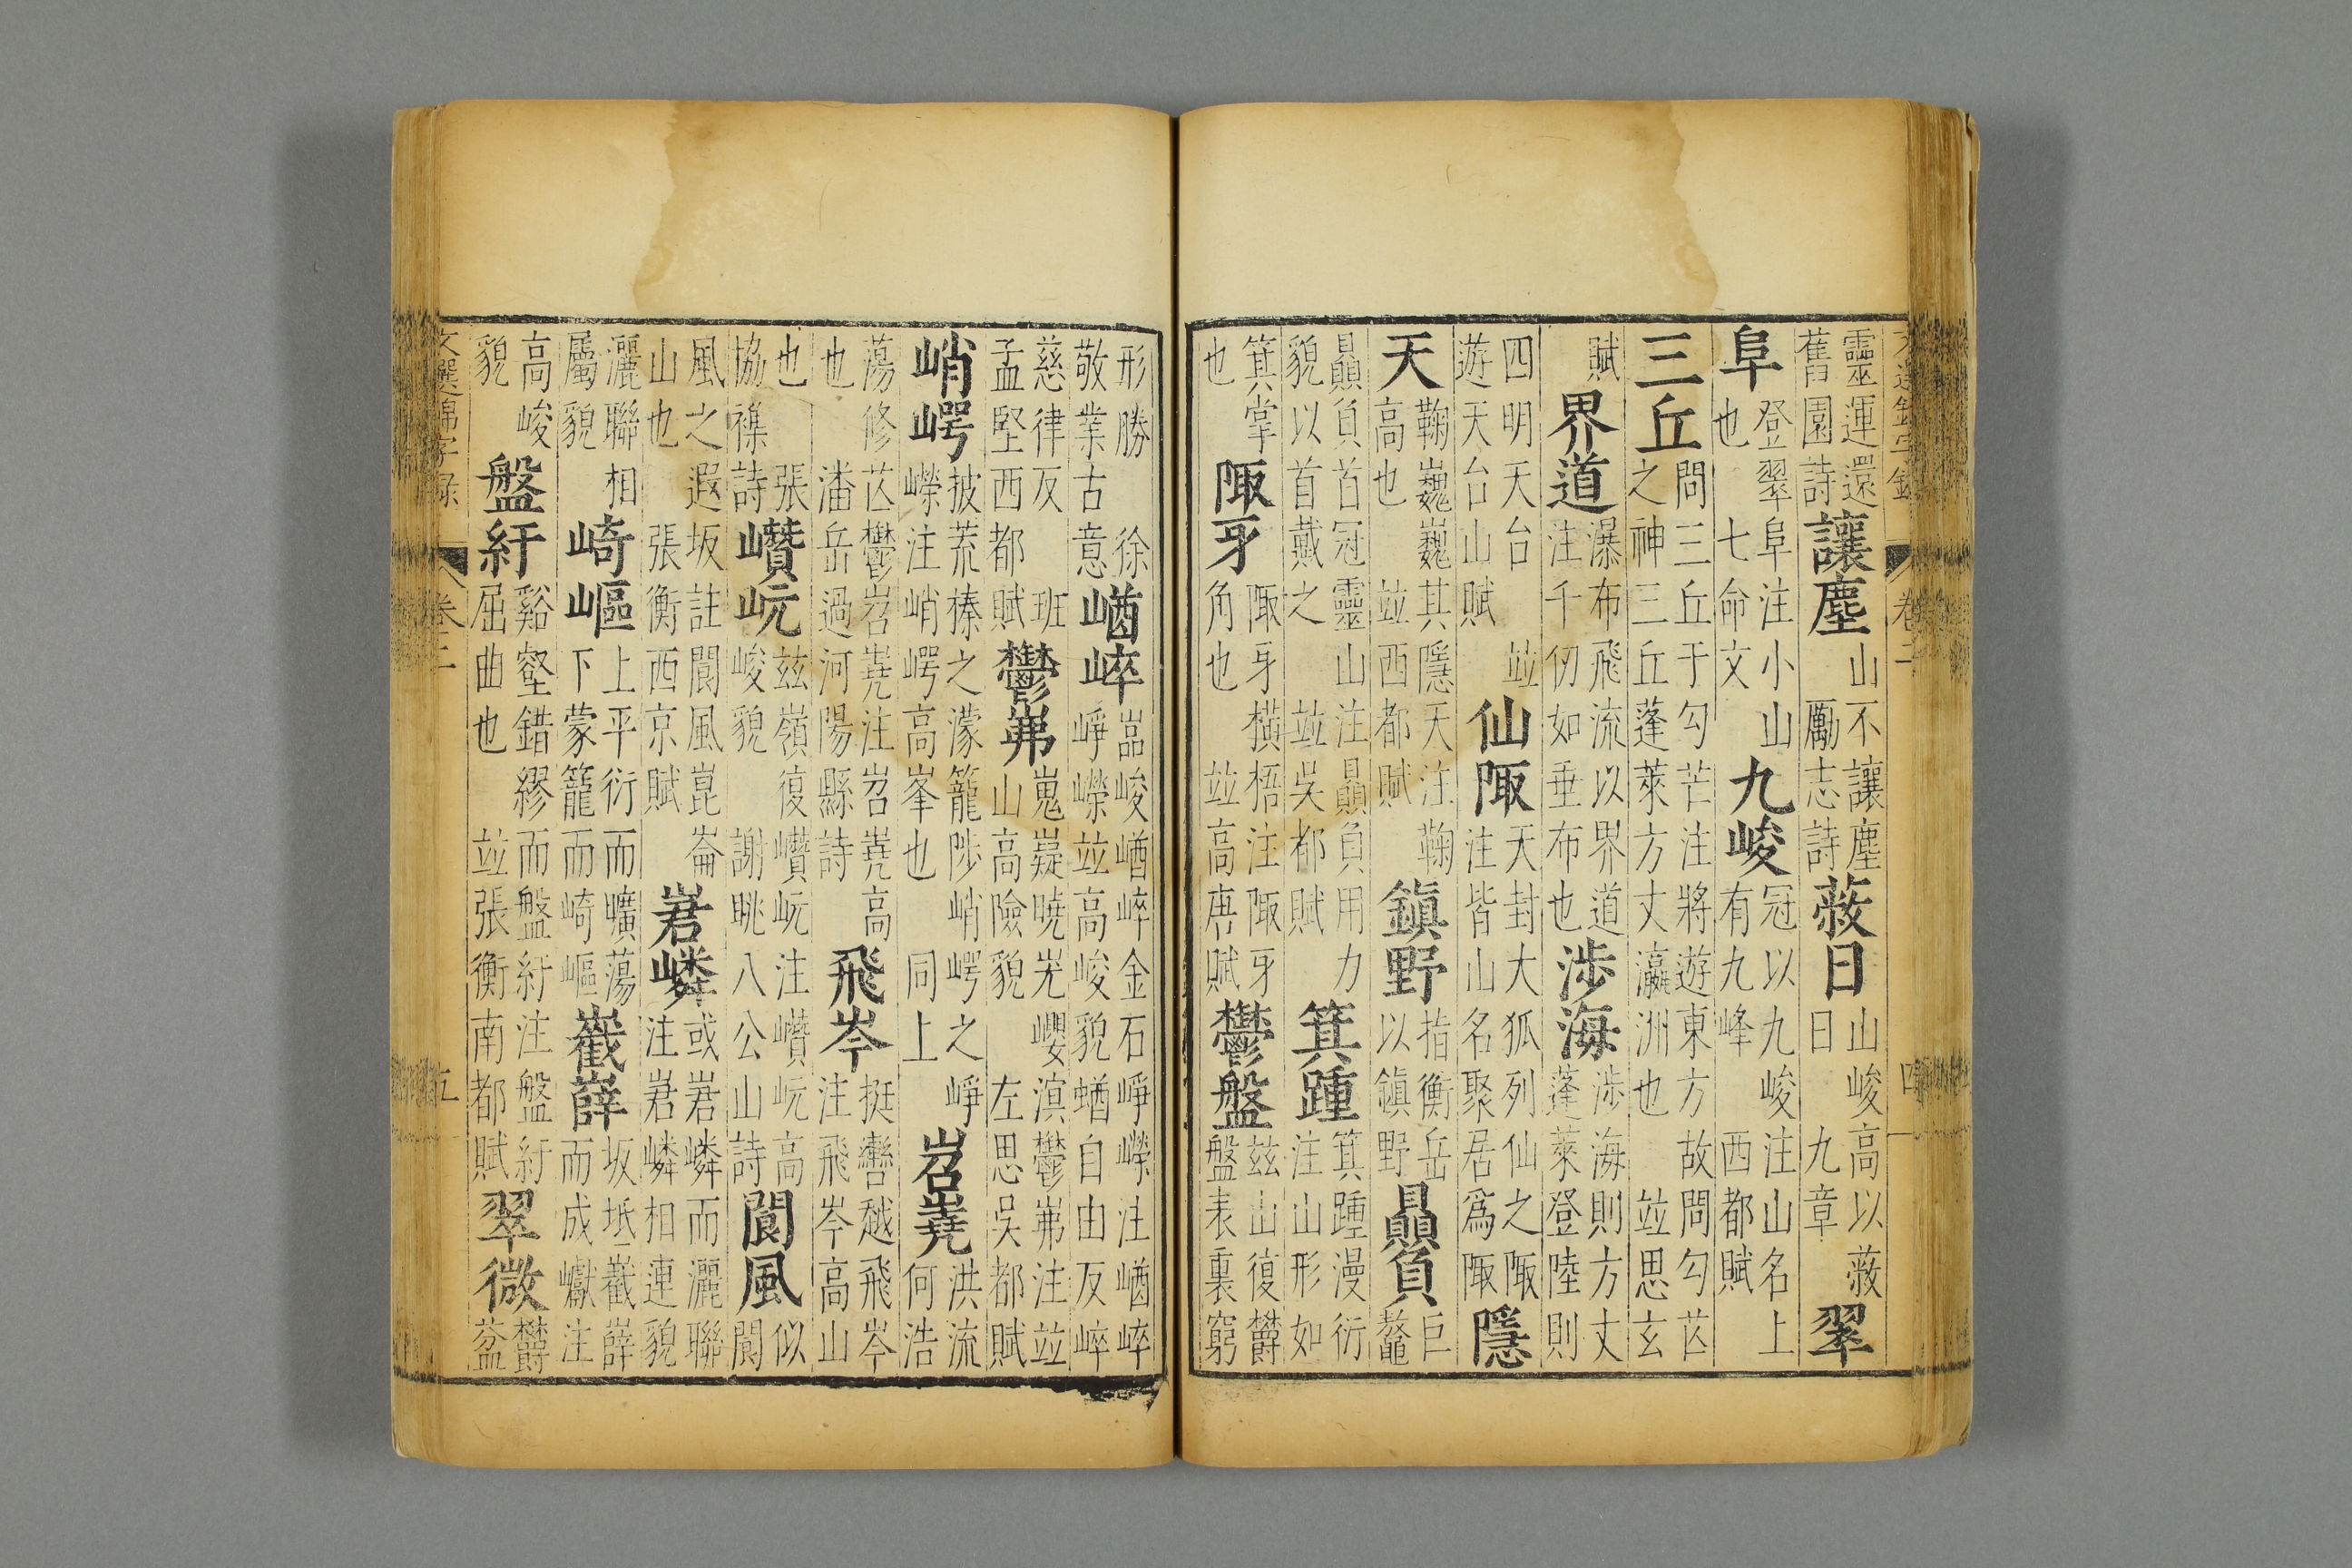 文選錦字錄 卷二 四
靈運還舊園詩讓塵山不讓塵勵志詩蔽日山峻高以蔽日 九章翠
阜登翠阜注小山也 七命文九峻冠以九峻注山名上有九峰 西都賦
三丘問三丘于勾芒注將遊東方故問勾芒之神三丘蓬萊方丈瀛洲也 並思玄
賦界道瀑布飛流以界道注千仞如垂布也涉海涉海則方丈蓬萊登陸則
四明天台 並遊天台山賦仙陬天封大狐列仙之陬注皆山名聚居爲陬隱
天鞠巍巍其隱天注鞠高也 並西都賦鎮野指衡岳以鎮野贔負巨鼇
贔負首冠靈山注贔負用力貌以首戴之 並吳都賦箕踵箕踵漫衍注山形如
箕掌也陬牙陬牙橫梧注陬牙角也 並高唐賦鬱盤茲山復鬱盤表裏窮
形勝 徐敬業古意崷崪嵓峻崷崪金石崢嶸注崷崪崢嶸並高峻貌蝤自由反崪
慈律反 班孟堅西都賦鬱岪嵬嶷嶢屼巊溟鬱岪注並山高險貌 左思吳都賦
峭崿披荒榛之濛籠陟峭崿之崢嶸注峭崿高峯也 同上岧嶤洪流何浩
蕩修芒鬱岧嶤注岧嶤高也 潘岳過河陽縣詩飛岑挺轡越飛岑注飛岑高山
也 張協襍詩巑岏茲嶺復巑岏注巑岏高峻貌 謝眺八公山詩閬風似閬
風之遐坂註閬風崑崙山也 張衡西京賦峮嶙或峮嶙而灑聯注峮嶙相連貌
灑聯相屬貌崎嶇上平衍而曠蕩下蒙籠而崎嶇嶻嶭坂坻嶻嶭而成巘注
高峻貌盤紆谿壑錯繆而盤紆注盤紆屈曲也 並張衡南都賦翠微鬱葐
文選錦字錄 卷二 五